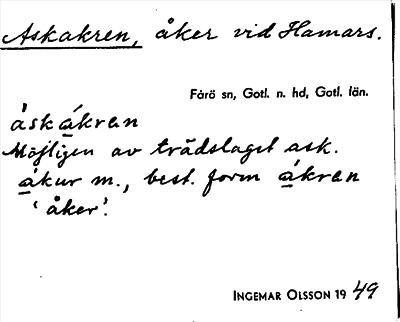 Askakren, åker vid Hamars.
Fårö sn, Gotl. n. hd, Gotl. län.
áskákran
Möjligen av trädslaget ask.
ákur m., best. form ákran
'åker'.
INGEMAR OLSSON 19 49